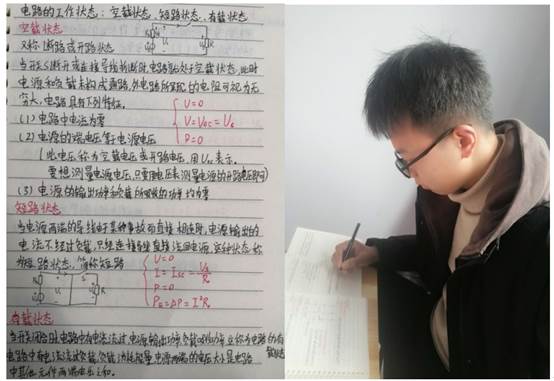 电路的工作状态：空载状态，短路状态，有载状态
空载状态
又称断路或开路状态
当开关S断开或连接导线折断时，电路就处于空载状态，此时
电源和负载未构成通路，外电路所呈现的电阻可视为无
穷大，电路具有下列特征。
(1) 电路中电流为零
(2) 电源的端电压等于电源电压
U=0
U=U₀c=Us
P=0
(此电压称为空载电压或开路电压，用U₀c表示。
要想测量电源电压，只要用电压表测量电源的开路电压即可)
(3) 电源的输出功率和负载所吸收的功率均为零
短路状态
当电源两端的导线由于某种事故而直接相连时，电源输出的
电流不经过负载，只经连接导线直接流回电源，这种状态称
为短路状态，简称短路
U=0
I=Isc=Us/R₀
P=0
PE=ΔP=I²R₀
有载状态
当开关闭合时，电路中有电流流过，电源输出功率负载
电路中有电流流过负载，负载消耗能量，电源两端的电压大小是电路
中其他元件两端电压之和。